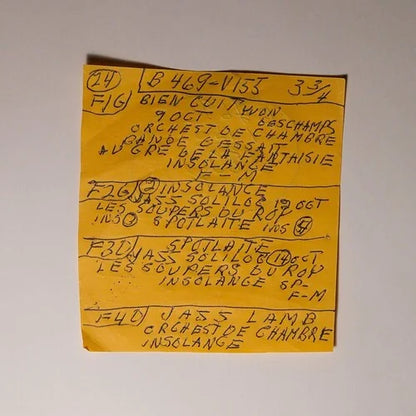 24 B 469-V155 3 3/4
F1G BIEN CUIT WON
9 OCT DESCHAMPS
ORCHEST DE CHAMBRE
BANDE DESSAIT
AU GRE DE LA FANTAISIE
INSOLANGE
F-M
F2G 2 INSOLANGE
JASS SOLILOG 12 OCT
LES SOUPERS DU ROY
INS SPOTLAITE INS
F3D SPOTLAITE
JASS SOLILOG 14 OCT
LES SOUPERS DU ROY
INSOLANGE SP-
F-M
F4D JASS LAMB
ORCHEST DE CHAMBRE
INSOLANGE